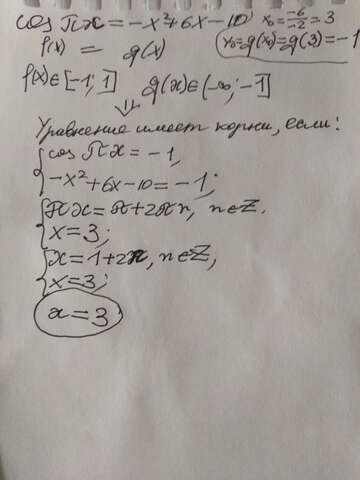 cos πx = -x²+6x-10 x₀ = -6/-2 = 3
f(x) = g(x) y₀=g(x₀)=g(3)=-1
f(x)∈[-1; 1] g(x)∈(-∞; -1]
⇓
Уравнение имеет корни, если:
{cos πx = -1,
-x²+6x-10 = -1;
{πx = π+2πn, n∈Z.
x=3;
{x = 1+2n, n∈Z,
x=3;
x=3